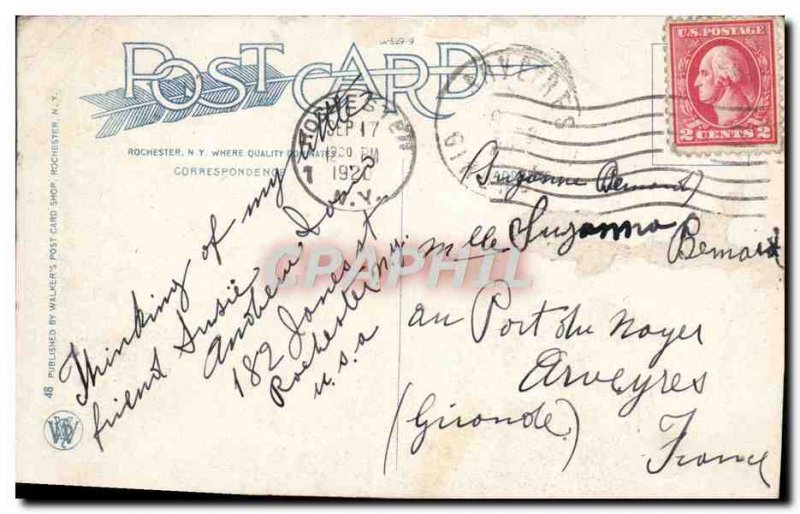 POST CARD
A-52919
ROCHESTER, N. Y. WHERE QUALITY
CORRESPONDENCE
48 PUBLISHED BY WALKER'S POST CARD SHOP, ROCHESTER, N. Y.
ROCHESTER
SEP 17
PM
1920
N.Y.
1
ARVEYRES
GIRONDE
U.S. POSTAGE
2 CENTS 2
Thinking of my little
friend Susie
Andrew
182 Jones st
Rochester N.y.
U.S.A
Suzanne Bernard
Mlle Suzanna Bernard
au Port du Noyer
Arveyres
(Gironde)
France
CPAPHIL